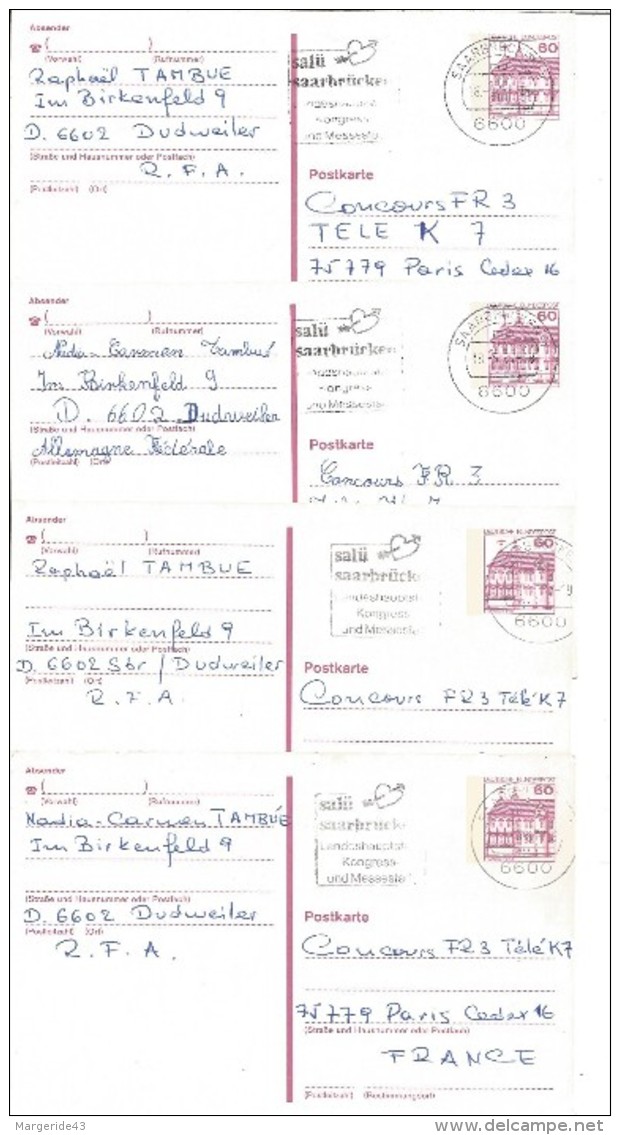 Absender
(Vorwahl) (Rufnummer)
Raphaël TAMBUE
Im Birkenfeld 9
D. 6602 Dudweiler
(Straße und Hausnummer oder Postfach)
R. F. A.
(Postleitzahl) (Ort)
salü
saarbrücken
Kongress
und Messestadt
SAARBRÜCKEN
6600
60
Postkarte
Concours FR 3
TELE K 7
75779 Paris Cedex 16
Absender
(Vorwahl) (Rufnummer)
Nadia-Carmen Tambué
Im Birkenfeld 9
D. 6602 Dudweiler
(Straße und Hausnummer oder Postfach)
Allemagne Fédérale
(Postleitzahl) (Ort)
salü
saarbrücken
60
6600
Postkarte
Concours FR 3
Absender
(Vorwahl) (Rufnummer)
Raphaël TAMBUE
Im Birkenfeld 9
(Straße und Hausnummer oder Postfach)
D. 6602 Sbr / Dudweiler
(Postleitzahl) (Ort)
R. F. A.
salü
saarbrücke
Landeshauptst
Kongress
und Messesta
DEUTSCHE BUNDESPOST
60
6600
Postkarte
Concours FR3 Télé K7
Absender
(Vorwahl) (Rufnummer)
Nadia-Carmen TAMBUE
Im Birkenfeld 9
(Straße und Hausnummer oder Postfach)
D. 6602 Dudweiler
(Postleitzahl) (Ort)
R. F. A.
salü
saarbrücke
Landeshauptst
Kongress
und Messestat
DEUTSCHE BUNDESPOST
60
6600
Postkarte
Concours FR3 Télé K7
75779 Paris Cedex 16
(Straße und Hausnummer oder Postfach)
FRANCE
(Postleitzahl) (Bestimmungsort)
Margeride43
delcampe.net